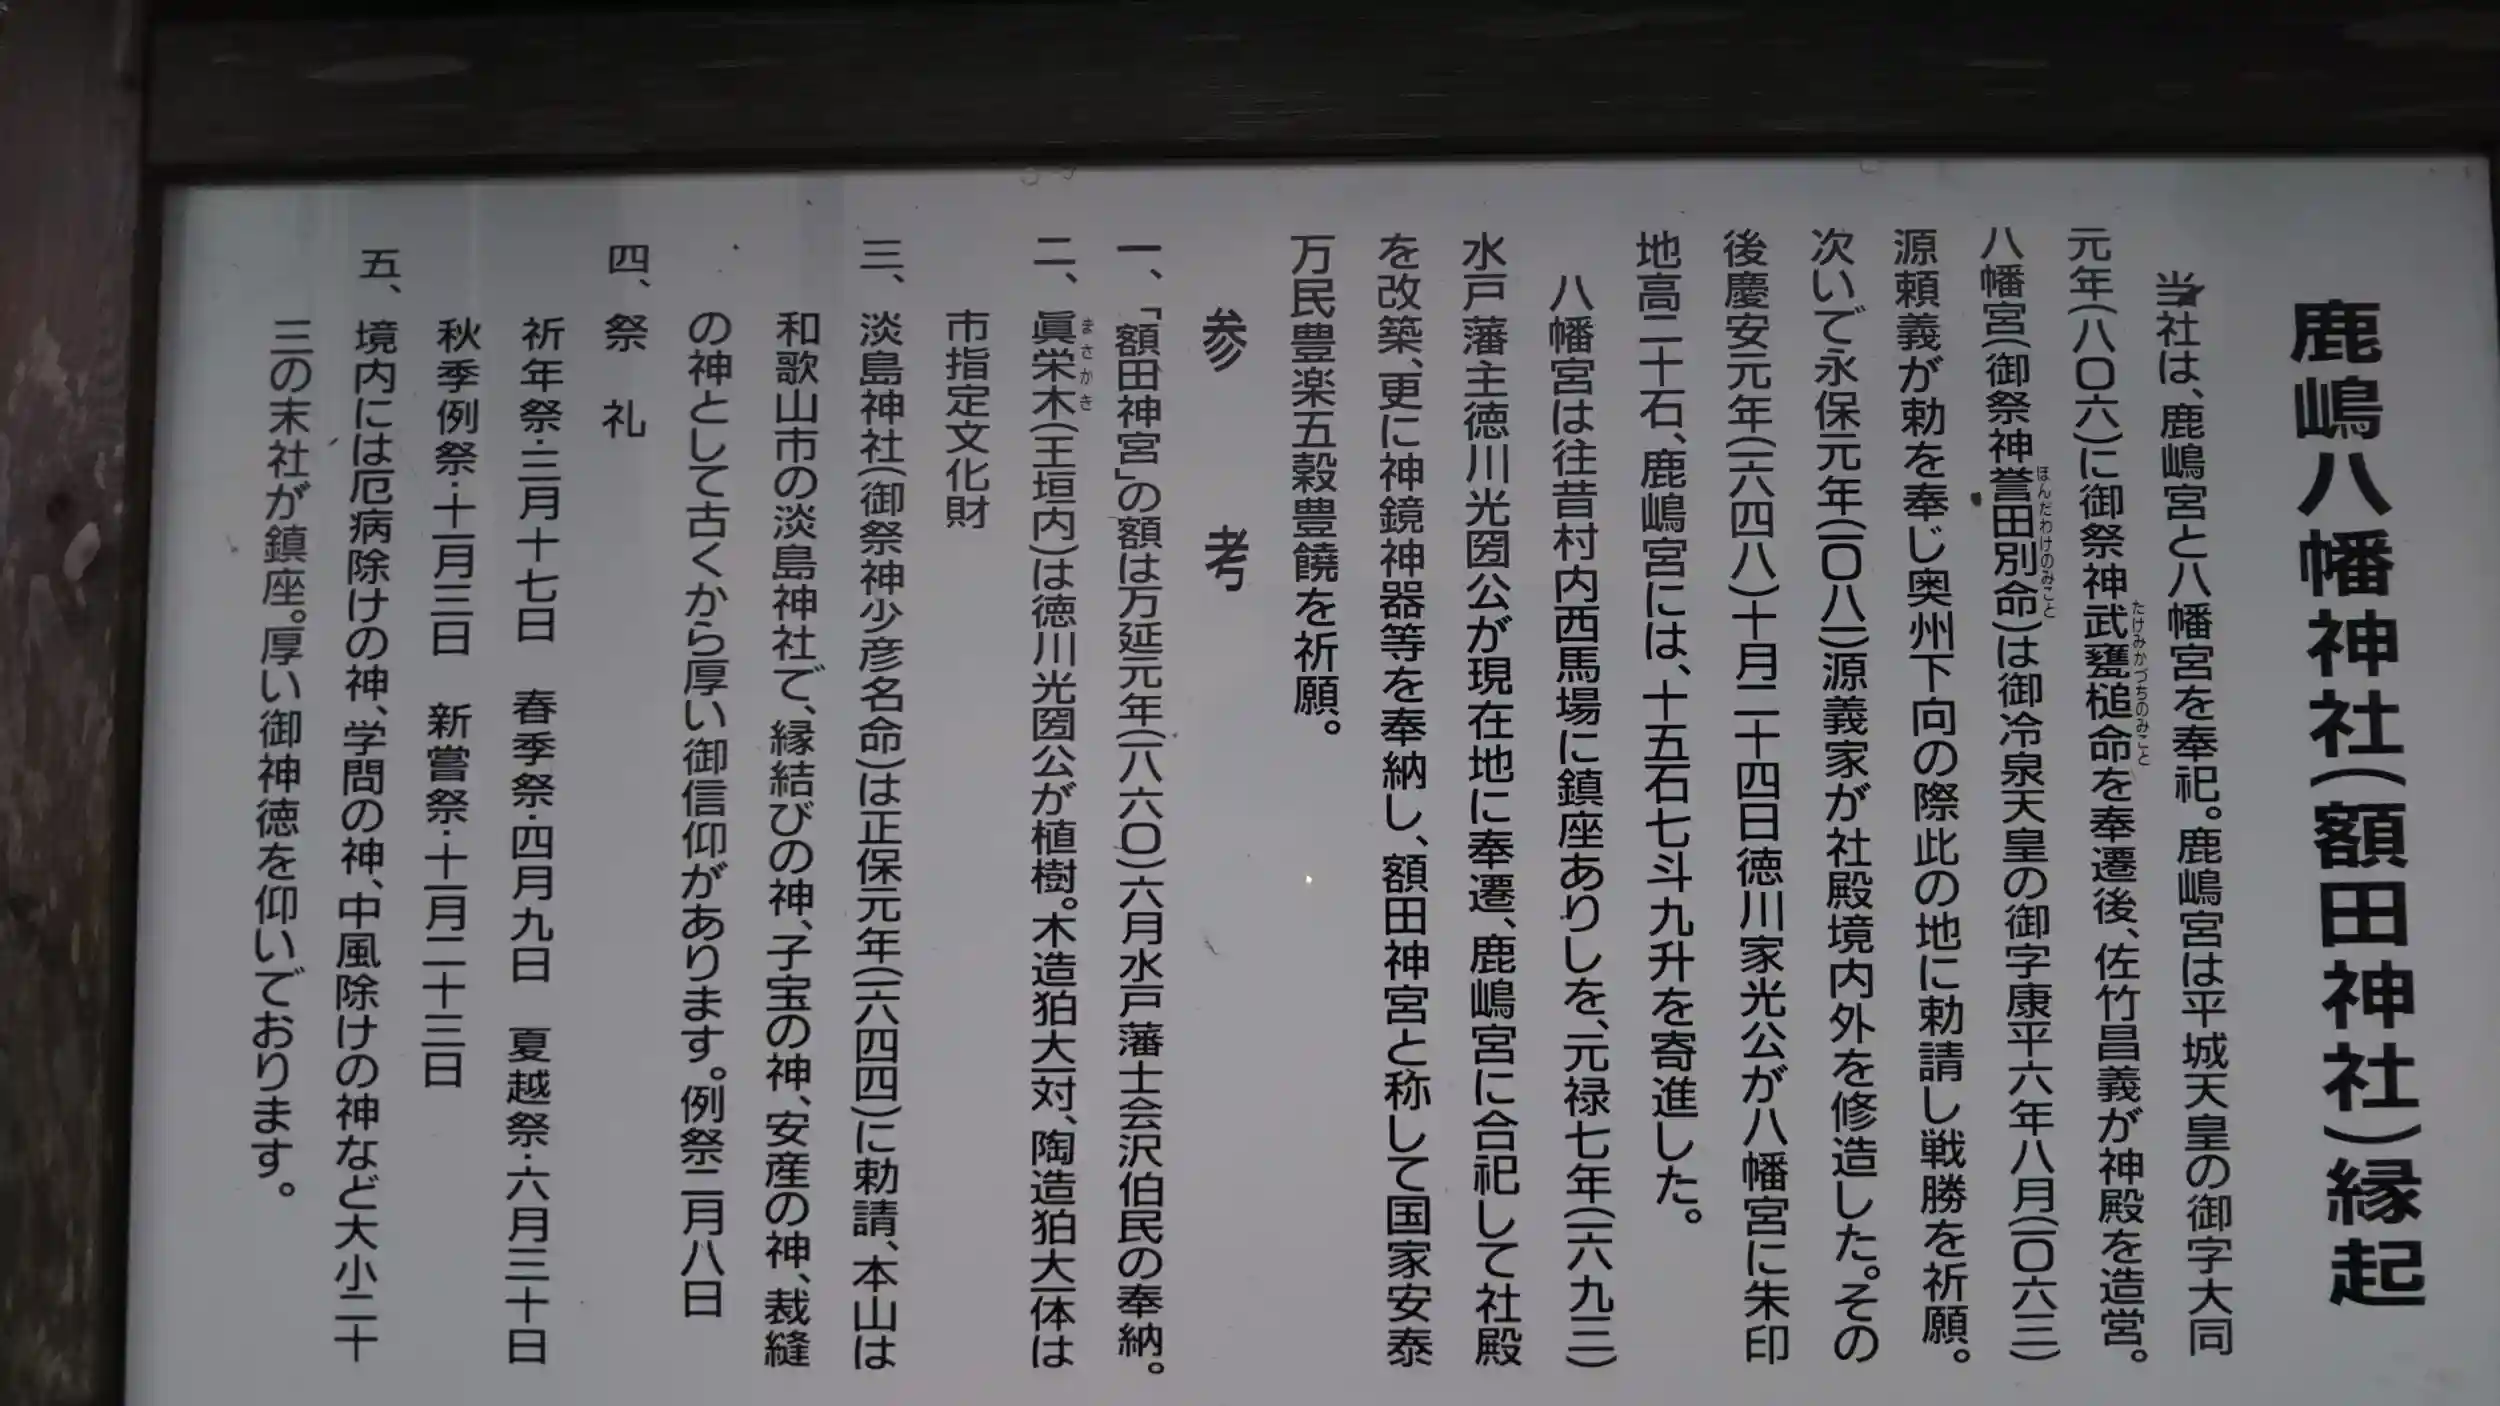 鹿嶋八幡神社(額田神社)縁起
当社は、鹿嶋宮と八幡宮を奉祀。鹿嶋宮は平城天皇の御字大同
元年(八〇六)に御祭神武甕槌命を奉遷後、佐竹昌義が神殿を造営。
たけみかづちのみこと
八幡宮(御祭神誉田別命)は御冷泉天皇の御字康平六年八月(一〇六三)
ほんだわけのみこと
源頼義が勅を奉じ奥州下向の際此の地に勅請し戦勝を祈願。
次いで永保元年(一〇八一)源義家が社殿境内外を修造した。その
後慶安元年(一六四八)十月二十四日徳川家光公が八幡宮に朱印
地高二十石、鹿嶋宮には、十五石七斗九升を寄進した。
八幡宮は往昔村内西馬場に鎮座ありしを、元禄七年(一六九三)
水戸藩主徳川光圀公が現在地に奉遷、鹿嶋宮に合祀して社殿
を改築、更に神鏡神器等を奉納し、額田神宮と称して国家安泰
万民豊楽五穀豊饒を祈願。
参考
一、「額田神宮」の額は万延元年(一八六〇)六月水戸藩士会沢伯民の奉納。
二、眞栄木(王垣内)は徳川光圀公が植樹。木造狛犬一対、陶造狛犬一体は
まさかき
市指定文化財
三、淡島神社(御祭神少彦名命)は正保元年(一六四四)に勅請、本山は
和歌山市の淡島神社で、縁結びの神、子宝の神、安産の神、裁縫
の神として古くから厚い御信仰があります。例祭二月八日
四、祭 礼
祈年祭・三月十七日 春季祭・四月九日 夏越祭・六月三十日
秋季例祭・十一月三日 新嘗祭・十一月二十三日
五、境内には厄病除けの神、学問の神、中風除けの神など大小二十
三の末社が鎮座。厚い御神徳を仰いでおります。